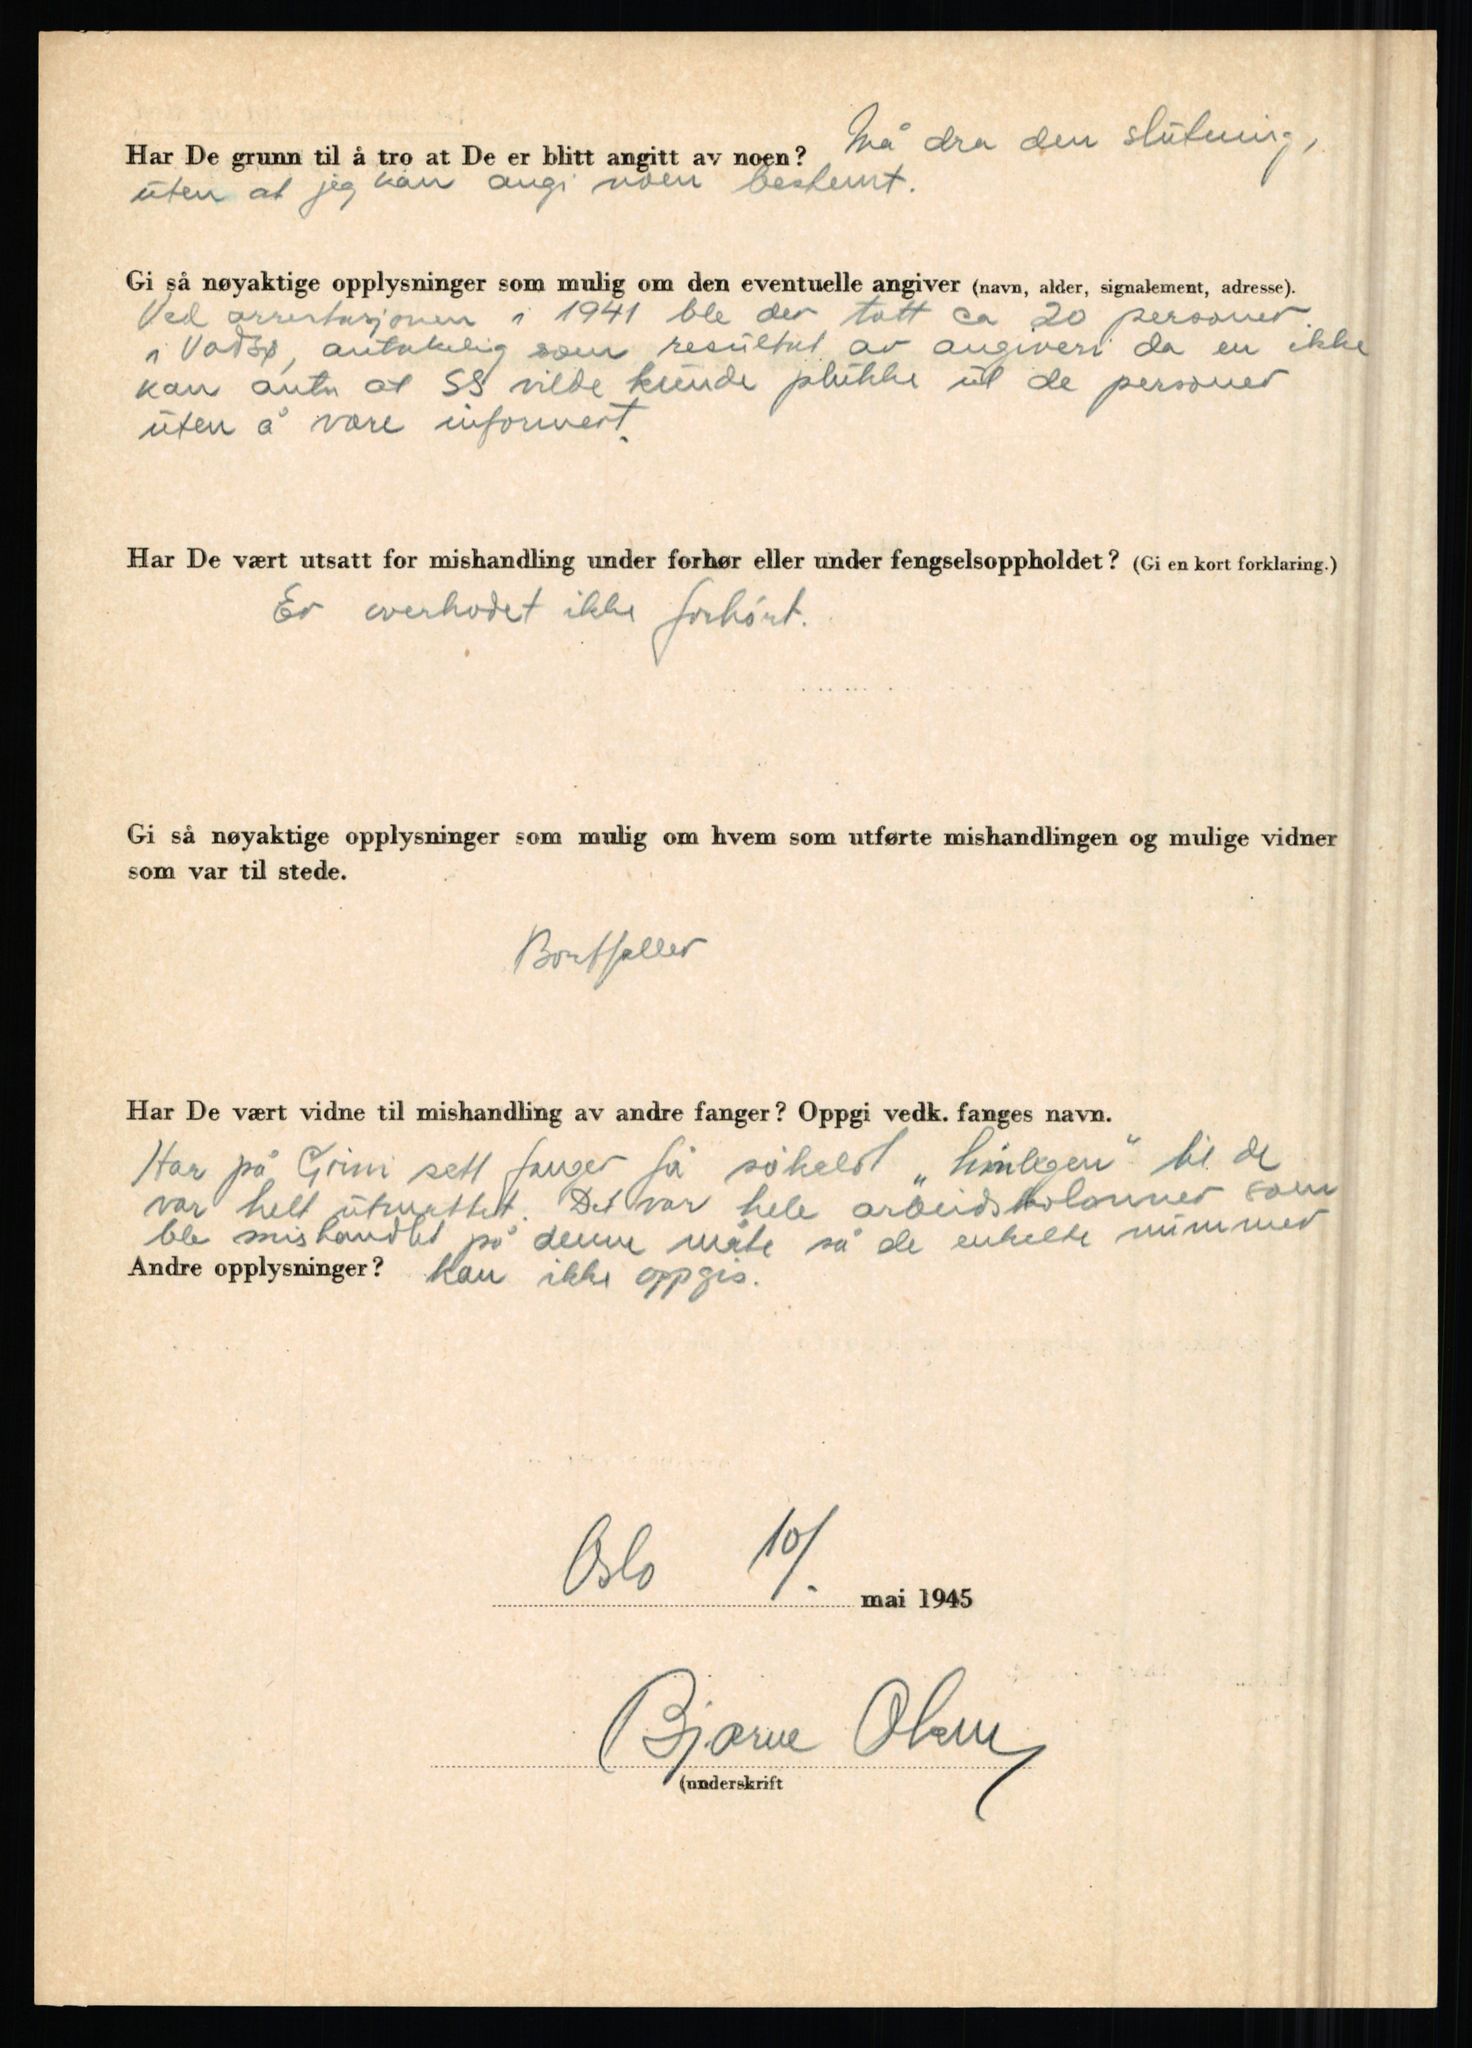 Har De grunn til å tro at De er blitt angitt av noen? Må dra den slutning,
uten at jeg kan angi noen bestemt.
Gi så nøyaktige opplysninger som mulig om den eventuelle angiver (navn, alder, signalement, adresse).
Ved arrestasjonen i 1941 ble der tatt ca 20 personer
i Vadsø, antakelig som resultat av angiveri da en ikke
kan anta at SS vilde kunde plukke ut de personer
uten å være informert.
Har De vært utsatt for mishandling under forhør eller under fengselsoppholdet? (Gi en kort forklaring.)
Er overhodet ikke forhørt.
Gi så nøyaktige opplysninger som mulig om hvem som utførte mishandlingen og mulige vidner
som var til stede.
Bortfaller
Har De vært vidne til mishandling av andre fanger? Oppgi vedk. fanges navn.
Har på Grini sett fanger få såkaldt „hinlegen" til de
var helt utmattet. Det var hele arbeidskolonner som
ble mishandlet på denne måte så de enkelte nummer
Andre opplysninger? kan ikke oppgis.
Oslo 10/. mai 1945
Bjarne Olsen
(underskrift